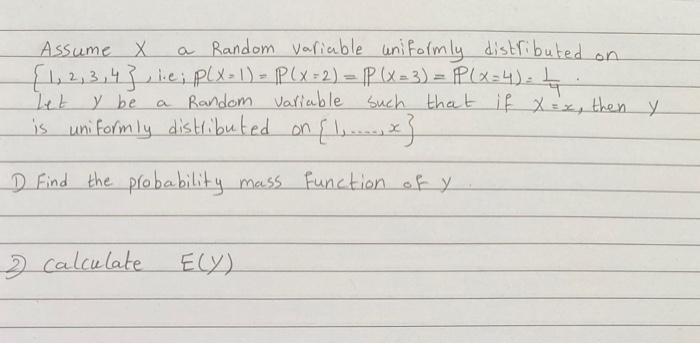 Assume X a Random variable uniformly distributed on
{1, 2, 3, 4}, i.e; P(X=1) = P(X=2) = P(X=3) = P(X=4) = 1/4.
Let y be a Random Variable such that if X = x, then y
is uniformly distributed on {1, ....., x}
1) Find the probability mass function of y.
2) calculate E(Y)